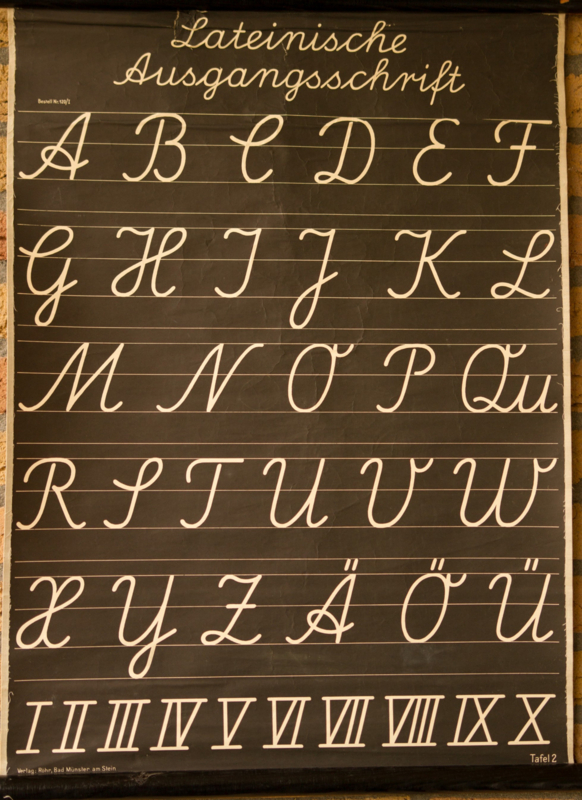 Lateinische
Ausgangsschrift
Bestell Nr. 120/2
A B C D E F
G H I J K L
M N O P Qu
R S T U V W
X Y Z Ä Ö Ü
I II III IV V VI VII VIII IX X
Tafel 2
Verlag: Röhr, Bad Münster am Stein